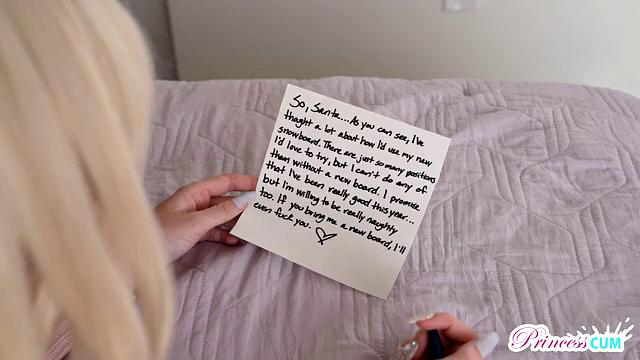 So, Santa... As you can see, I've
thought a lot about how I'd use my new
snowboard. There are just so many positions
I'd love to try, but I can't do any of
them without a new board. I promise
that I've been really good this year...
but I'm willing to be really naughty
too. If you bring me a new board, I'll
even fuck you.
PRINCESS CUM